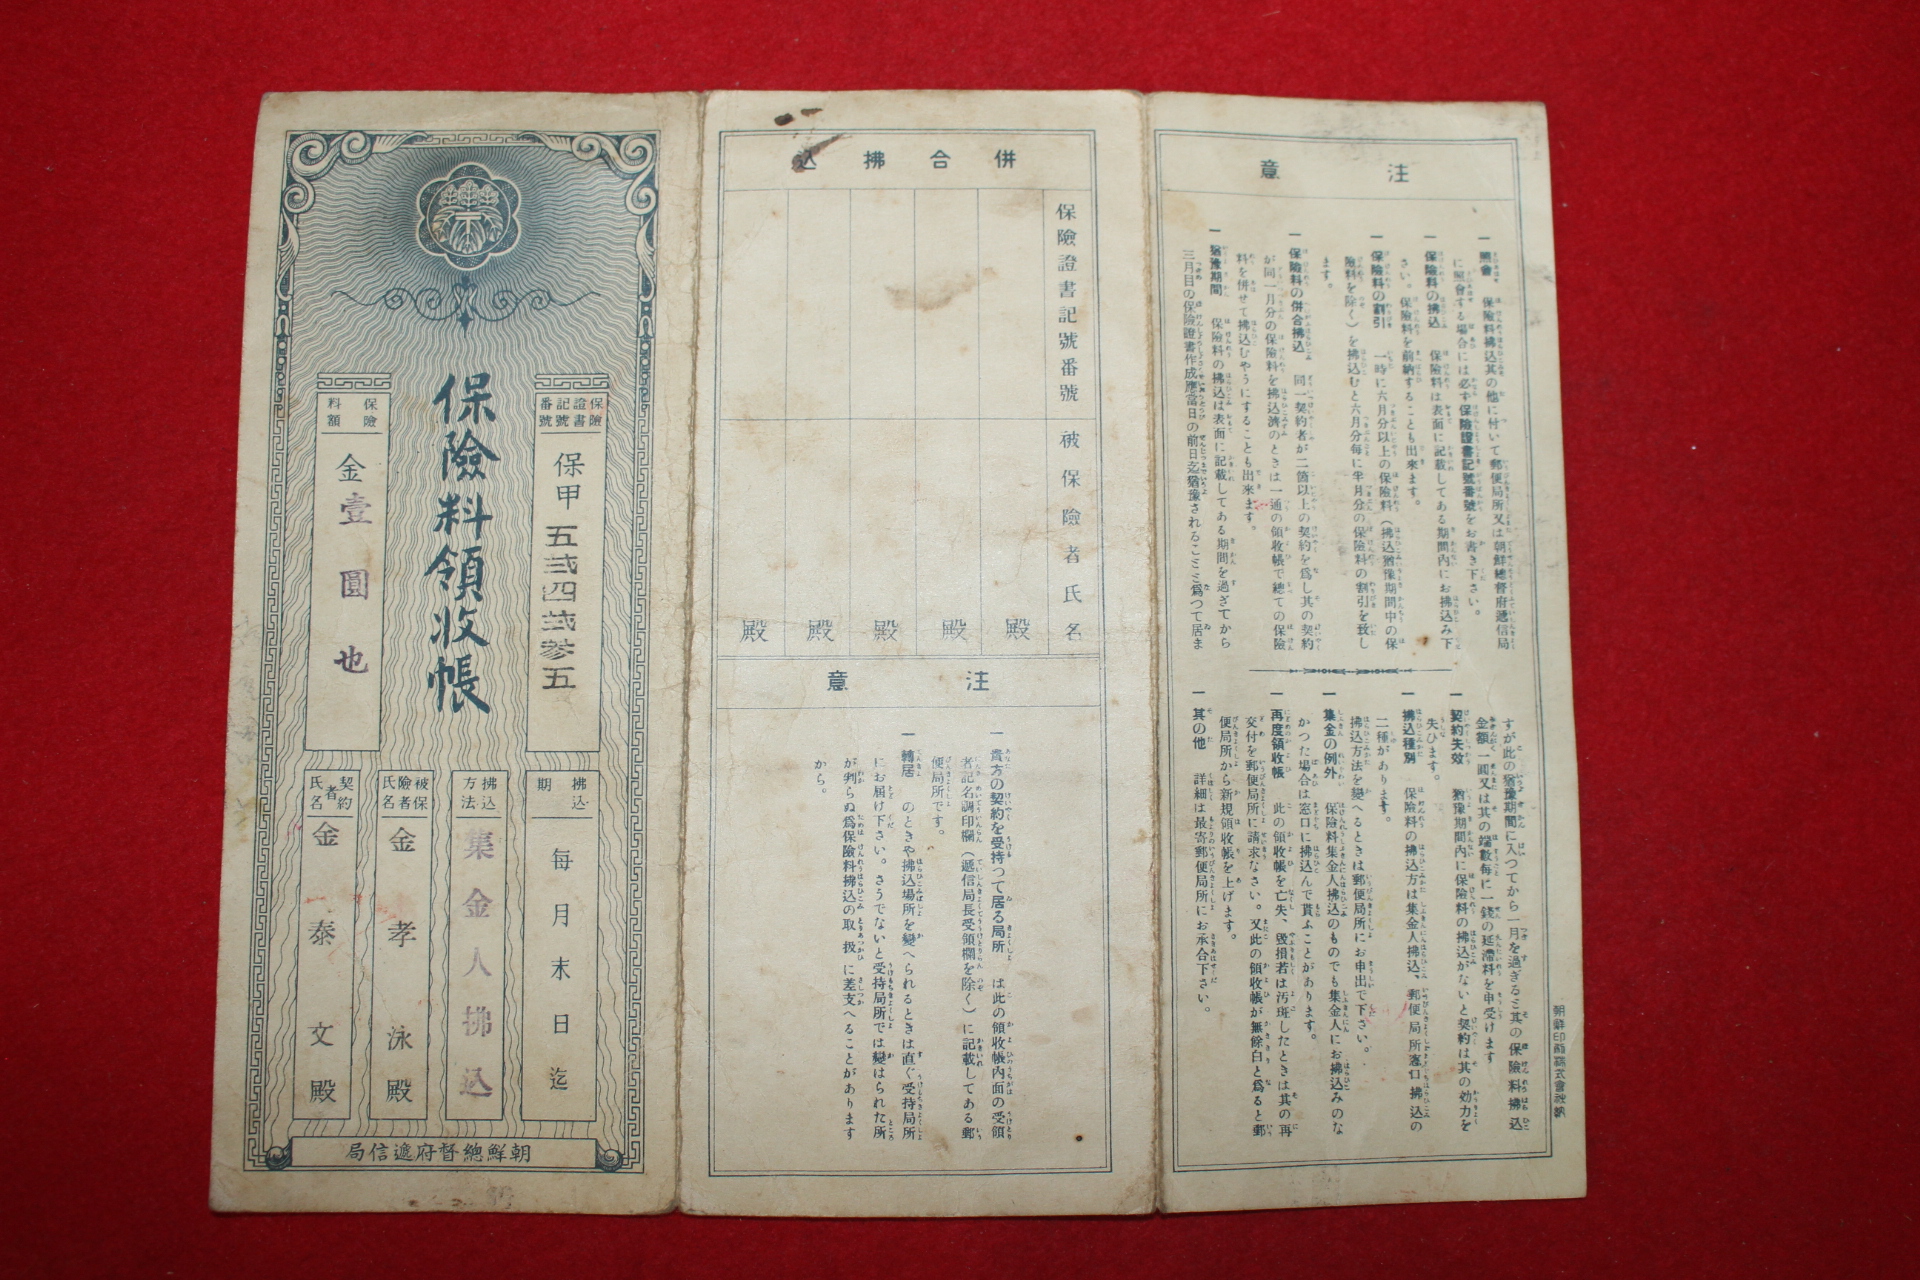 保險料領收帳
保險證書記號番號
保甲 五弐四弐参五
保險料額
金壹圓也
拂込期
每月末日迄
拂込方法
集金人拂込
被保險者氏名
金孝泳殿
契約者氏名
金泰文殿
朝鮮總督府遞信局
併合拂込
保險證書記號番號
被保險者氏名
殿
殿
殿
殿
殿
注意
一 貴方の契約を受持つて居る局所 は此の領收帳內面の受領
者記名調印欄(遞信局長受領欄を除く)に記載してある郵
便局所です。
一 轉居 のときや拂込場所を變へられるときは直ぐ受持局所
にお届け下さい。さうでないと受持局所では變はられた所
が判らぬ爲保險料拂込の取扱に差支へることがあります
から。
注意
一 照會 保險料拂込其の他に付いて郵便局所又は朝鮮總督府遞信局
に照會する場合には必ず保險證書記號番號をお書き下さい。
一 保險料の拂込 保險料は表面に記載してある期間內にお拂込み下
さい。保險料を前納することも出來ます。
一 保險料の割引 一時に六月分以上の保險料(拂込猶豫期間中の保
險料を除く)を拂込むと六月分每に半月分の保險料の割引を致し
ます。
一 保險料の併合拂込 同一契約者が二箇以上の契約を爲し其の契約
が同一月分の保險料を拂込濟のときは一通の領收帳で總ての保險
料を併せて拂込むやうにすることも出來ます。
一 猶豫期間 保險料の拂込は表面に記載してある期間を過ぎてから
三月目の保險證書作成應當日の前日迄猶豫されることと爲つて居ま
すが此の猶豫期間に入つてから一月を過ぎると其の保險料拂込
金額一圓又は其の端數每に一錢の延滯料を申受けます
一 契約失效 猶豫期間內に保險料の拂込がないと契約は其の効力を
失ひます。
一 拂込種別 保險料の拂込方は集金人拂込、郵便局所窓口拂込の
二種があります。
拂込方法を變へるときは郵便局所にお申出で下さい。
一 集金の例外 保險料集金人拂込のものでも集金人にお拂込みのな
かつた場合は窓口に拂込んで貰ふことがあります。
一 再度領收帳 此の領收帳を亡失、毀損若は汚斑したときは其の再
交付を郵便局所に請求なさい。又此の領收帳が無餘白と爲ると郵
便局所から新規領收帳を上げます。
一 其の他 詳細は最寄郵便局所にお承合下さい。
朝鮮印刷株式會社納